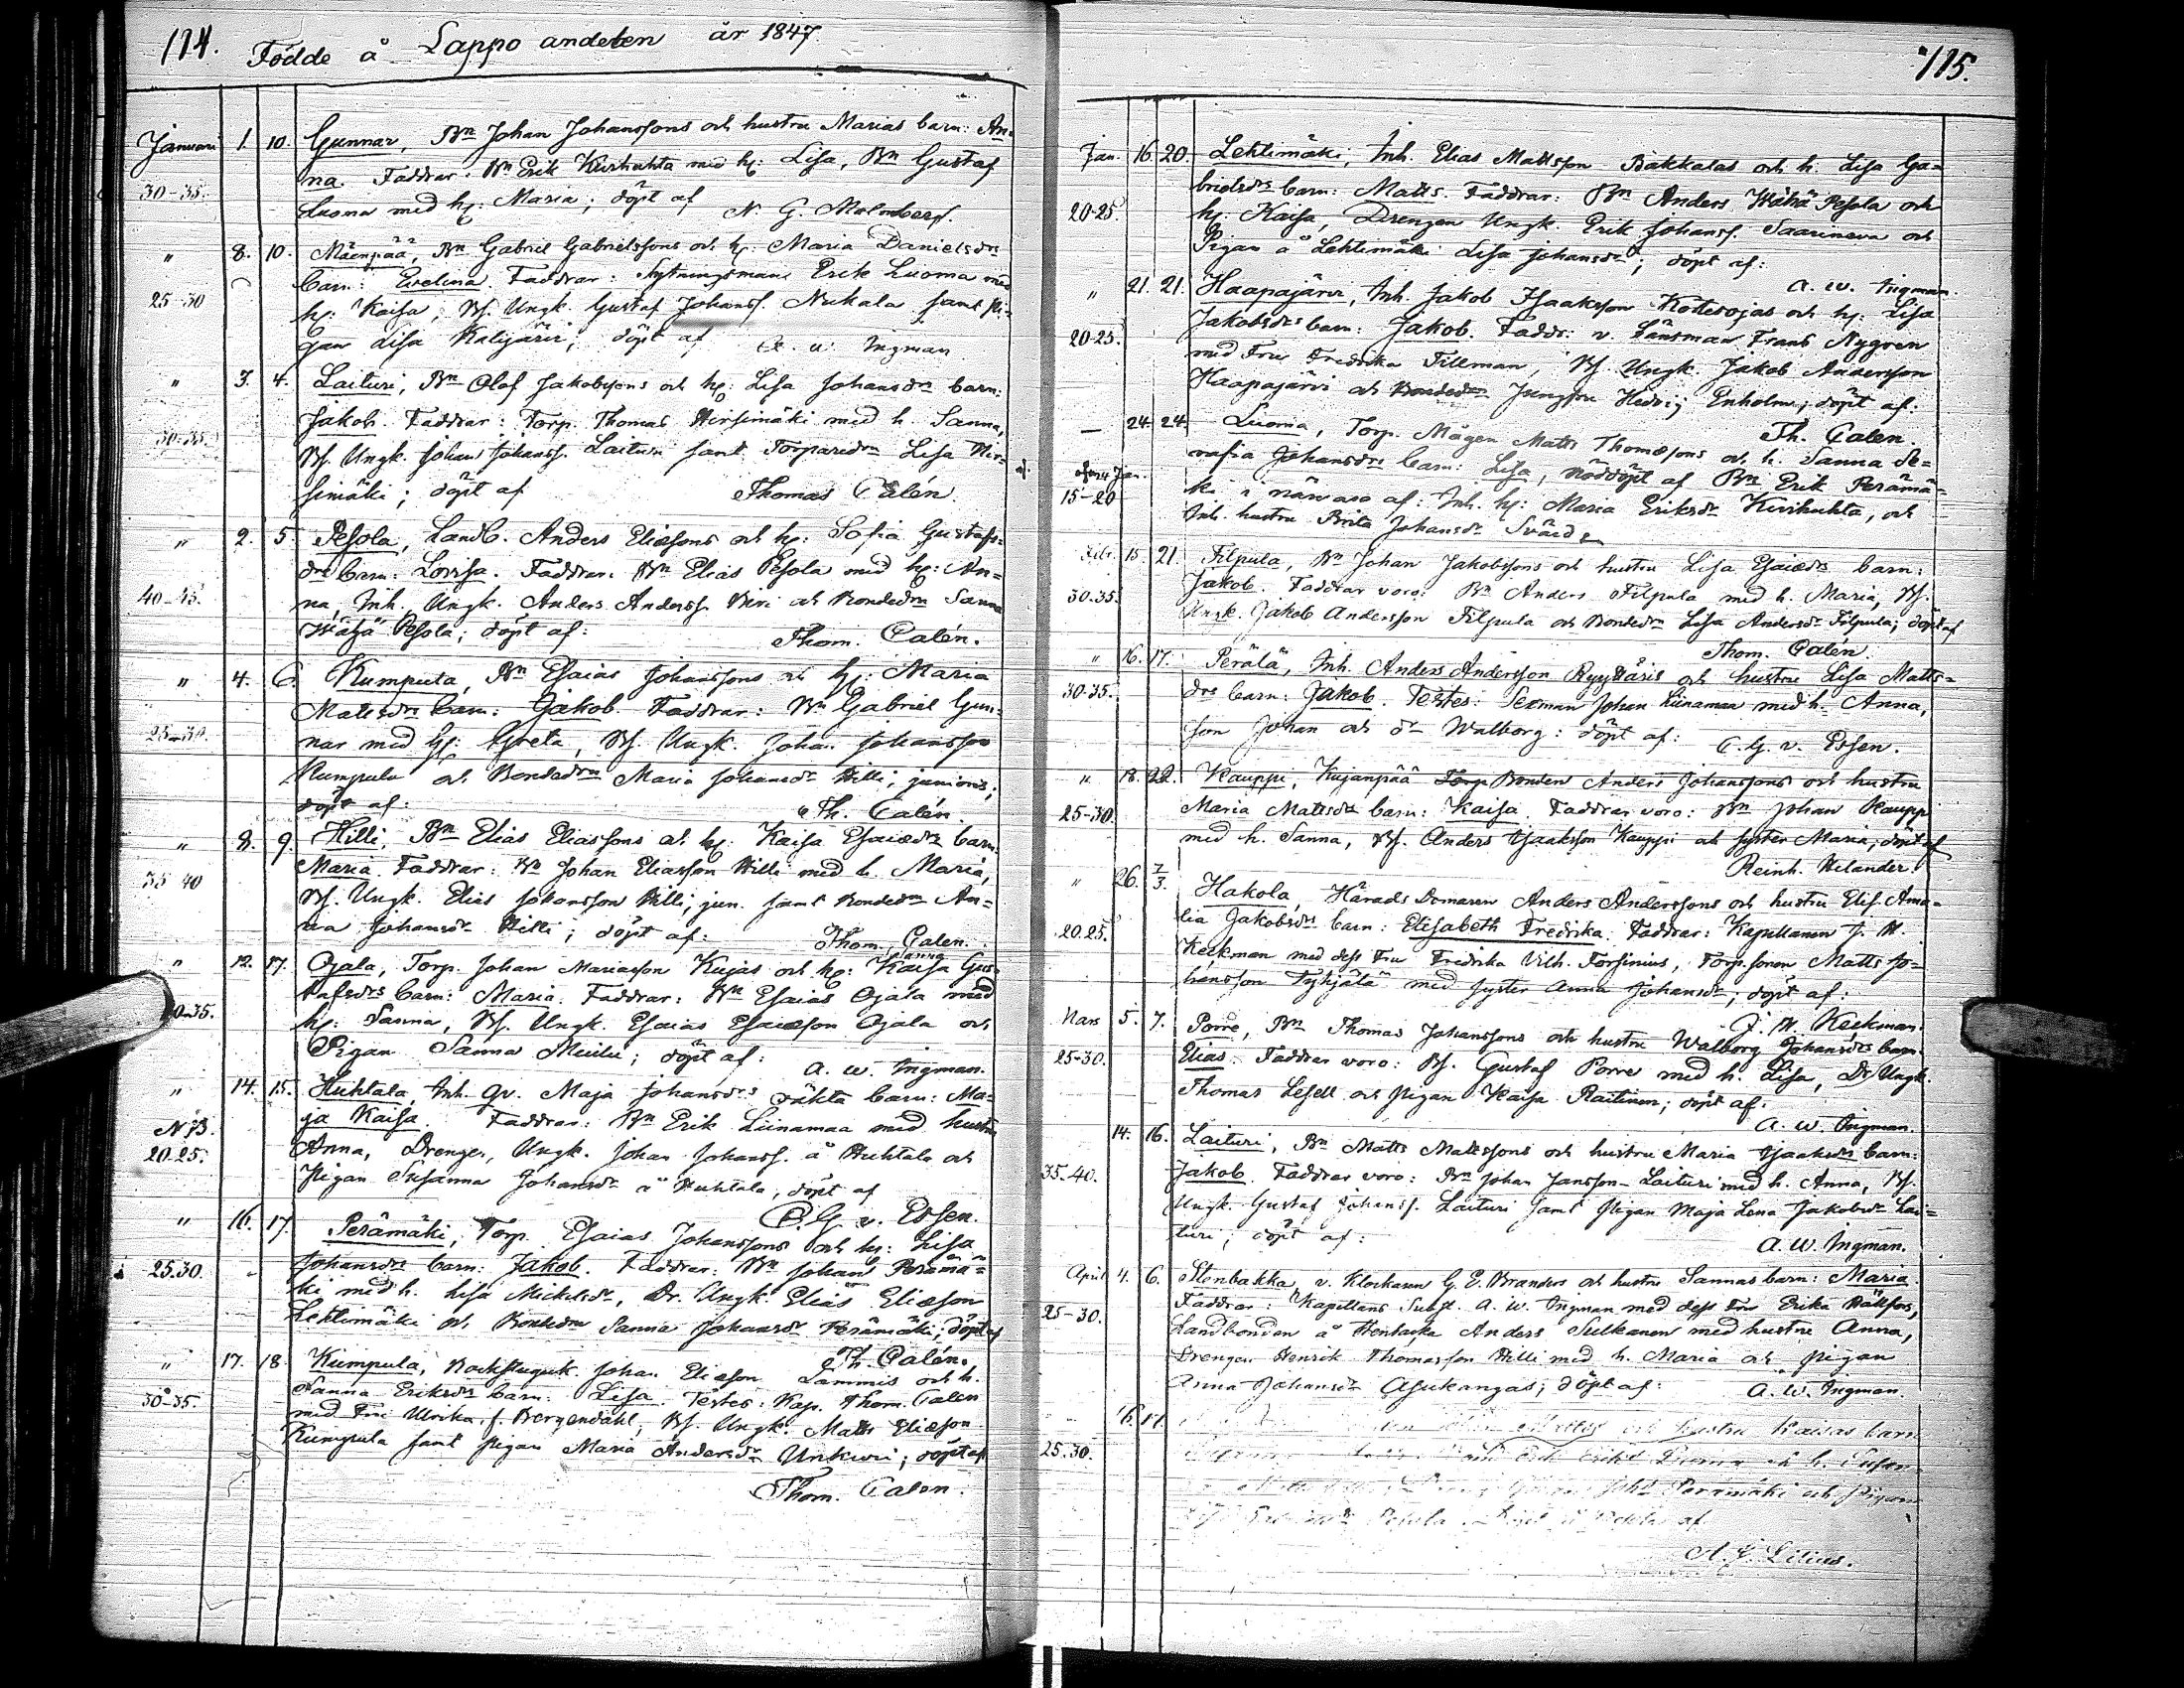 114. Födde å Lappo andelen år 1847.
Januari 1. 10. Gunnar, Bn Johan Johanssons och hustru Marias barn: An-
30-35. na. Faddrar: Bn Erik Kivihuhta med hu: Lisa, Bn Gustaf
Luoma med hu: Maria; döpt af N. G. Malmberg.
" 8. 10. Mäenpää, Bn Gabriel Gabrielssons och hu: Maria Danielsdrs
barn: Evelina. Faddrar: Sytningsman Erik Luoma med
25-30 hu: Kaisa, Bs. Ungk. Gustaf Johanss. Nukala samt Pi-
gan Lisa Kalijärvi; döpt af A. W. Ingman.
" 3. 4. Laituri, Bn Olof Jakobssons och hu: Lisa Johansdrs barn:
Jakob. Faddrar: Torp. Thomas Hirsimäki med h. Sanna,
30-35. Bs. Ungk. Johan Johanss. Laituri samt Torparedr Lisa Hir-
simäki; döpt af Thomas Calén.
" 2. 5. Pesola, Landb. Anders Eliassons och hu: Sofia Gustafs-
drs barn: Lovisa. Faddrar: Bn Elias Pesola med hu: An-
40-45. na, Inh. Ungk. Anders Anderss. och Bondedn Sanna
Wähä Pesola; döpt af: Thom. Calén.
" 4. 6. Kumpula, Bn Esaias Johanssons och hu: Maria
Mattsdrs barn: Jakob. Faddrar: Bn Gabriel Gun-
25-30. nar med hu: Greta, Bs. Ungk. Johan Johansson
Kumpula och Bondedn Maria Johansdr Hilli, junioris;
döpt af: Th. Calén.
" 8. 9. Hilli, Bn Elias Eliassons och hu: Kaisa Esaiædrs barn:
Maria. Faddrar: Bn Johan Eliasson Hilli med h. Maria,
35-40 Bs. Ungk. Elias Johansson Hilli, jun. samt Bondedn An-
na Johansdr Hilli; döpt af: Thom. Calen.
" 12. 17. Ojala, Torp. Johan Mariasson Kujas och hu: Kaisa Gus-
tafsdrs barn: Maria. Faddrar: Bn Esaias Ojala med
30-35. hu: Sanna, Bs. Ungk. Esaias Esaiæson Ojala och
Pigan Sanna; döpt af: A. W. Ingman.
" 14. 15. Huhtala, Inh. qv. Maja Johansdrs oäkta barn: Ma-
N.B. ja Kaisa. Faddrar: Bn Erik Liinamaa med hustru
20-25. Anna, Drengen, Ungk. Johan Johanss. å Huhtala och
Pigan Susanna Johansdr å Huhtala; döpt af
C. G. v. Essen.
" 16. 17. Perämäki, Torp. Esaias Johanssons och hu: Lisa
25.30. Johansdrs barn: Jakob. Faddrar: Bn Johan Perämä-
ki med h. Lisa Mickelsdr, Dr. Ungk. Elias Eliæson
Lehtimäki och Bondedn Sanna Johansdr Perämäki; döpt af
Th. Calén.
" 17. 18. Kumpula, Johan Eliæson Lammis och h.
30-35. Sanna Eriksdrs barn: Lisa. Testes: Kap. Thom. Calen
med Fru Ulrika f. Bergendahl, Bs. Ungk. Matts Eliæson
Kumpula samt pigan Maria Andersdr Unkuri; döpt af
Thom. Calen.
115.
Jan. 16. 20. Lehtimäki, Inh. Elias Mattsson Bakkalas och h. Lisa Ga-
brielsdrs barn: Matts. Faddrar: Bn Anders Wähä Pesola och
20-25 hu: Kaisa, Drengen Ungk. Erik Johanss. Saarineva och
Pigan å Lehtimäki Lisa Johansdr; döpt af:
A. W. Ingman.
" 21. 21. Haapajärvi, Inh. Jakob Isaaksson Kotterojas och hu: Lisa
20-25. Jakobsdrs barn: Jakob. Faddr: v. Länsman Frans Nygren
med Fru Fredrika Tillman, Bs. Ungk. Jakob Andersson
Haapajärvi och Jungfru Hedvig Enholm; döpt af:
Th. Calen.
— 24. 24. Luoma, Torp. Mågen Matts Thomæsons och h. Sanna Se-
rafia Johansdrs barn: Lisa, nöddöpt af Bn Erik Perämä-
15-20 ki i närvaro af: Inh. hu: Maria Eriksdr Kivihuhta, och
Inh. hustru Brita Johansdr Svärd.
Febr. 15. 21. Filpula, Bn Johan Jakobssons och hustru Lisa Esaiædrs barn:
30-35. Jakob. Faddrar voro: Bn Anders Filpula med h. Maria, Bs.
Ungk. Jakob Andersson Filpula och Bondedn Lisa Andersdr Filpula; döpt af
Thom. Calén.
" 16. 17. Perälä, Inh. Anders Andersson Ryytäris och hustru Lisa Matts-
30-35. drs barn: Jakob. Testes: Sexman Johan Liinamaa med h. Anna,
son Johan och dr Walborg: döpt af: C. G. v. Essen.
" 18. 22. Kauppi, Kujanpää Torp. Bonden Anders Johanssons och hustru
25-30. Maria Mattsdrs barn: Kaisa. Faddrar voro: Bn Johan Kauppi
med h. Sanna, Bs. Anders Isaaksson Kauppi och syster Maria; döpt af
Reinh. Helander.
" 26. 7/3. Hakola, Härads Domaren Anders Anderssons och hustru Elis. Ama-
20.25. lia Jakobsdrs barn: Elisabeth Fredrika. Faddrar: Kapellanen J. M.
Keckman med dess Fru Fredrika Vilh. Forsinius, Torp.sonen Matts Jo-
hansson Tyhjälä med syster Anna Johansdr; döpt af:
J. M. Keckman.
Mars 5. 7. Porre, Bn Thomas Johanssons och hustru Walborg Johansdrs barn:
25-30. Elias. Faddrar voro: Bs. Gustaf Porre med h. Lisa, Dr Ungk.
Thomas Lesell och pigan Kaisa Raitinen; döpt af:
A. W. Ingman.
14. 16. Laituri, Bn Matts Mattssons och hustru Maria Isaaksdrs barn:
35-40. Jakob. Faddrar voro: Bn Johan Jansson-Laituri med h. Anna, Bs.
Ungk. Gustaf Johanss. Laituri samt pigan Maja Lena Jakobsdr Lai-
turi; döpt af: A. W. Ingman.
April 4. 6. Stenbakka, v. Klockaren G. E. Branders och hustru Sannas barn: Maria.
25-30. Faddrar: Kapellans Subst. A. W. Ingman med dess Fru Erika,
Landbonden å Stenbacka Anders Sulkanen med hustru Anna,
Drengen Henrik Thomasson Hilli med h. Maria och pigan
Anna Johansdr Asukangas; döpt af: A. W. Ingman.
16. 17. och hustru Kaisas barn
25.30. Erik Luoma och h.
Perämäki och Pigan
Pesola. af
A. E. Lilius.